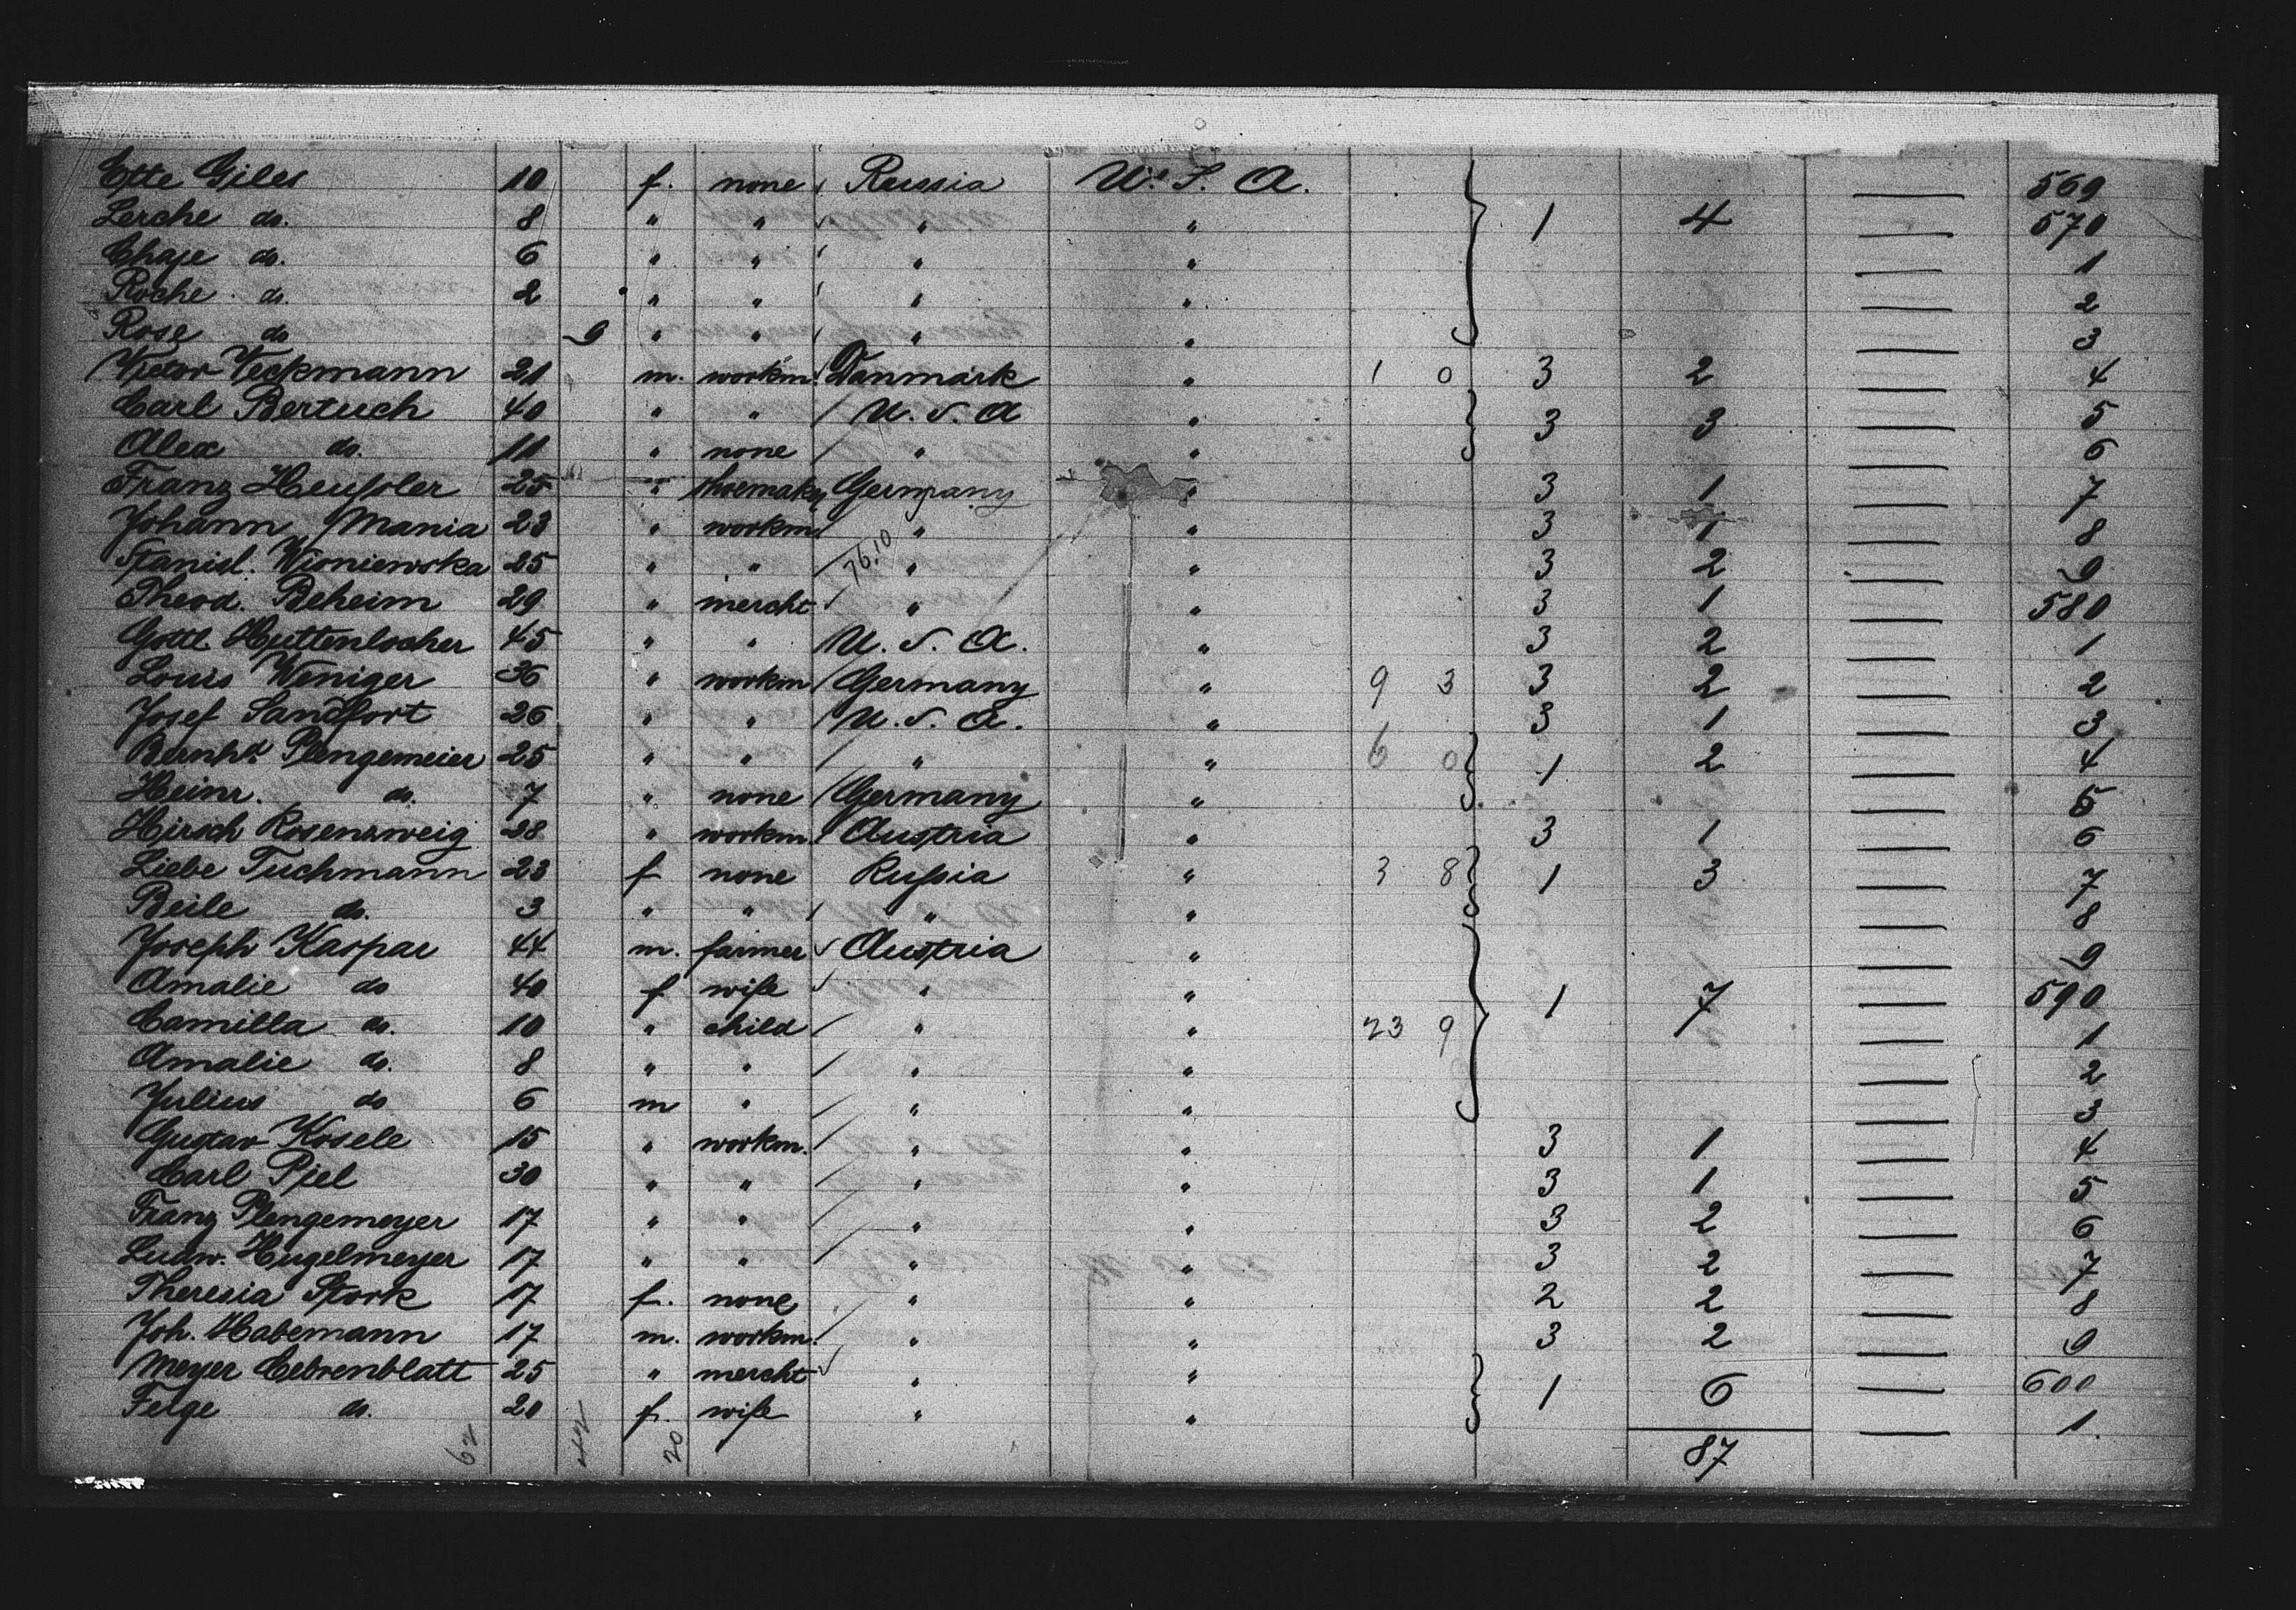 Ette Giles 10 f. none Russia U. S. A. — 569
Lerche do. 8 " " " " 1 4 — 570
Chaje do. 6 " " " " — 1
Roche do. 2 " " " " — 2
Rose do 9 " " " " — 3
Victor Veckmann 21 m. workm. Danmark " 1 0 3 2 — 4
Carl Bertuch 40 " " U. S. A " 3 3 — 5
Alex do. 11 " none " " — 6
Franz Heußler 25 " shoemaker Germany " 3 1 — 7
Johann Mania 23 " workm " " 3 1 — 8
Stanisl. Wisniewska 25 " " 76.10 " " 3 2 — 9
Theod. Beheim 29 " mercht " " 3 1 — 580
Gottl. Huttenlocher 45 " " U. S. A. " 3 2 — 1
Louis Weniger 36 " workm Germany " 9 3 3 2 — 2
Josef Sandfort 26 " " U. S. A. " 3 1 — 3
Bernhd Plengemeier 25 " " " " 6 0 1 2 — 4
Heinr. do. 7 " none Germany " — 5
Hirsch Rosenzweig 28 " workm Austria " 3 1 — 6
Liebe Tuchmann 23 f none Rußia " 3 8 1 3 — 7
Beile do. 3 " " " " — 8
Joseph Kaspar 44 m. farmer Austria " — 9
Amalie do 40 f wife " " 1 7 — 590
Camilla do. 10 " child " " 23 9 — 1
Amalie do. 8 " " " " — 2
Julius do 6 m " " " — 3
Gustav Kosele 15 " workm. " " 3 1 — 4
Carl Piel 30 " " " " 3 1 — 5
Franz Plengemeyer 17 " " " " 3 2 — 6
Ludw. Hugelmeyer 17 " " " " 3 2 — 7
Theresia Stork 17 f. none " " 2 2 — 8
Joh. Habemann 17 m. workm. " " 3 2 — 9
Meyer Cebrenblatt 25 " mercht " " 1 6 — 600
Feige do. 20 f. wife " " — 1.
62 42 20 87